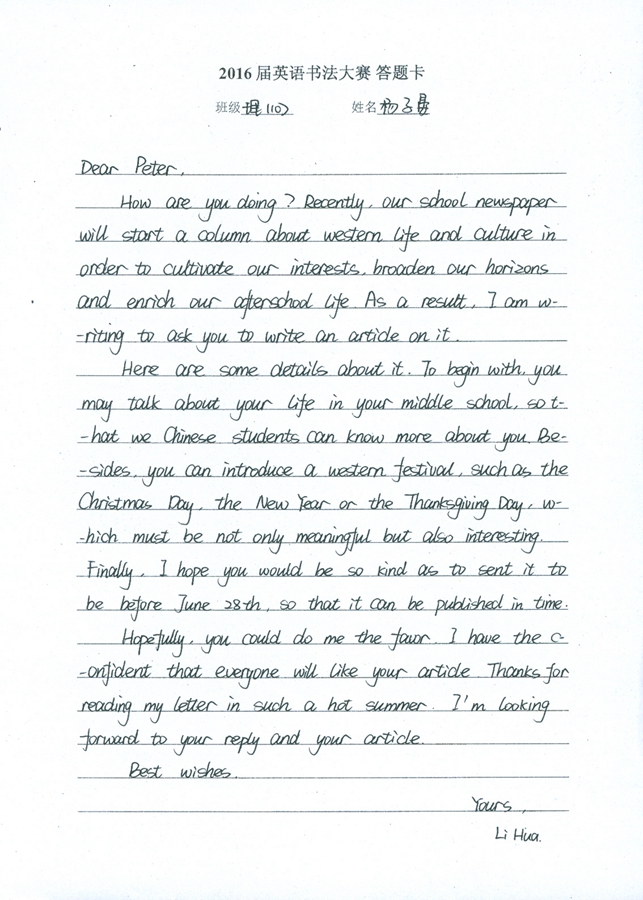 2016 届英语书法大赛 答题卡
班级 理(10) 姓名 杨子
Dear Peter,
How are you doing? Recently, our school newspaper
will start a column about western life and culture in
order to cultivate our interests, broaden our horizons
and enrich our afterschool life. As a result, I am w-
-riting to ask you to write an article on it.
Here are some details about it. To begin with, you
may talk about your life in your middle school, so t-
-hat we Chinese students can know more about you. Be-
-sides, you can introduce a western festival, such as the
Christmas Day, the New Year or the Thanksgiving Day, w-
-hich must be not only meaningful but also interesting.
Finally, I hope you would be so kind as to sent it to
be before June 28th, so that it can be published in time.
Hopefully, you could do me the favor. I have the c-
-onfident that everyone will like your article. Thanks for
reading my letter in such a hot summer. I'm looking
forward to your reply and your article.
Best wishes.
Yours,
Li Hua.